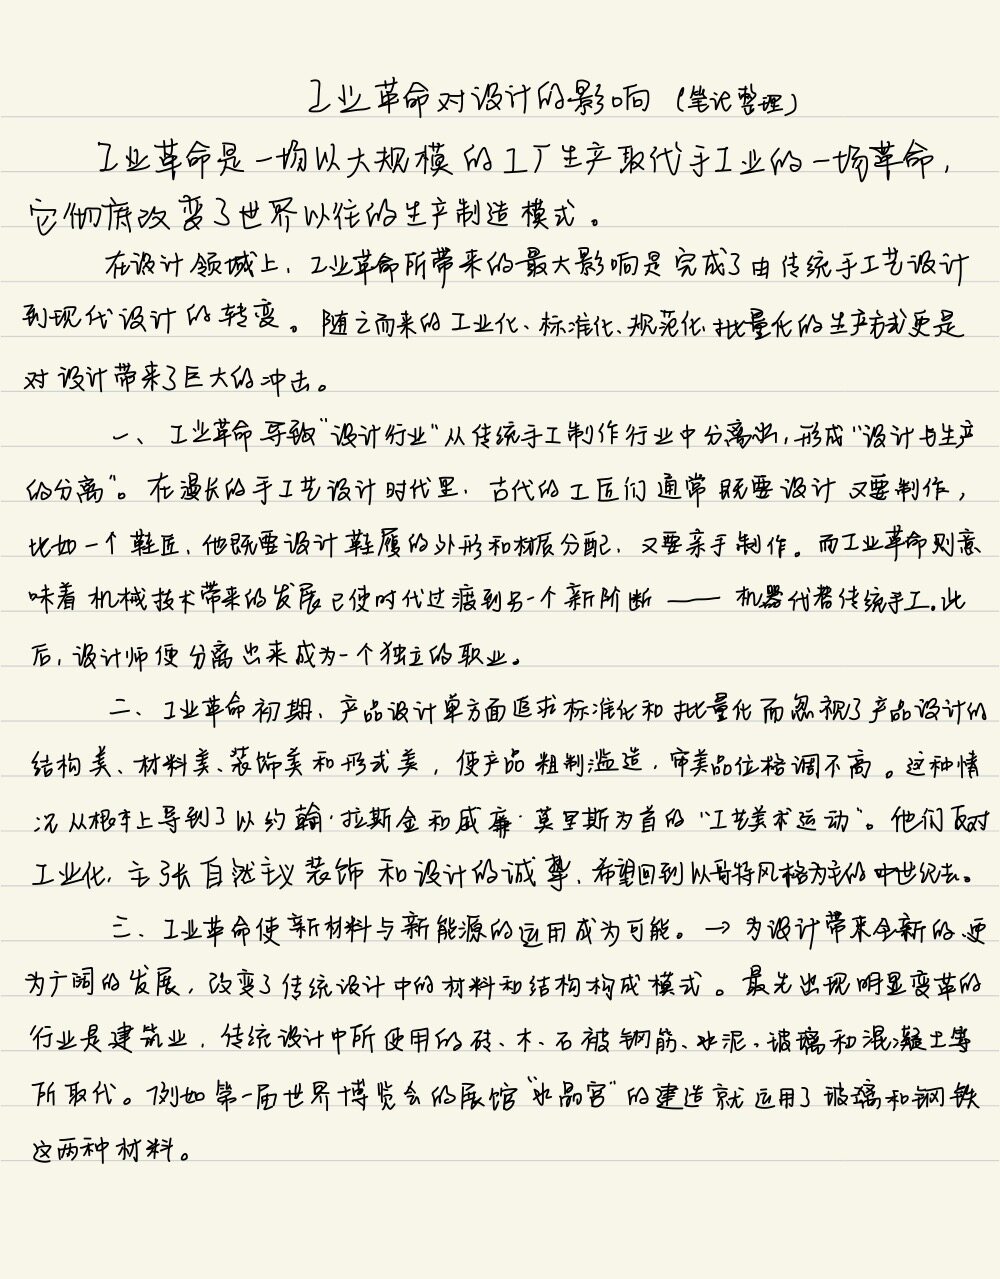 工业革命对设计的影响（笔记整理）
工业革命是一场以大规模的工厂生产取代手工业的一场革命，
它彻底改变了世界以往的生产制造模式。
在设计领域上，工业革命所带来的最大影响是完成了由传统手工艺设计
到现代设计的转变。随之而来的工业化、标准化、规范化、批量化的生产方式更是
对设计带来了巨大的冲击。
一、工业革命导致“设计行业”从传统手工制作行业中分离出，形成“设计与生产
的分离”。在漫长的手工艺设计时代里，古代的工匠们通常既要设计又要制作，
比如一个鞋匠，他既要设计鞋履的外形和材质分配，又要亲手制作。而工业革命则意
味着机械技术带来的发展已使时代过渡到另一个新阶断——机器代替传统手工。此
后，设计师便分离出来成为一个独立的职业。
二、工业革命初期，产品设计单方面追求标准化和批量化而忽视了产品设计的
结构美、材料美、装饰美和形式美，使产品粗制滥造，审美品位格调不高。这种情
况从根本上导到了以约翰·拉斯金和威廉·莫里斯为首的“工艺美术运动”。他们反对
工业化，主张自然主义装饰和设计的诚挚，希望回到以哥特风格为主的中世纪去。
三、工业革命使新材料与新能源的运用成为可能。→为设计带来全新的更
为广阔的发展，改变了传统设计中的材料和结构构成模式。最先出现明显变革的
行业是建筑业，传统设计中所使用的砖、木、石被钢筋、水泥、玻璃和混凝土等
所取代。例如第一届世界博览会的展馆“水晶宫”的建造就运用了玻璃和钢铁
这两种材料。